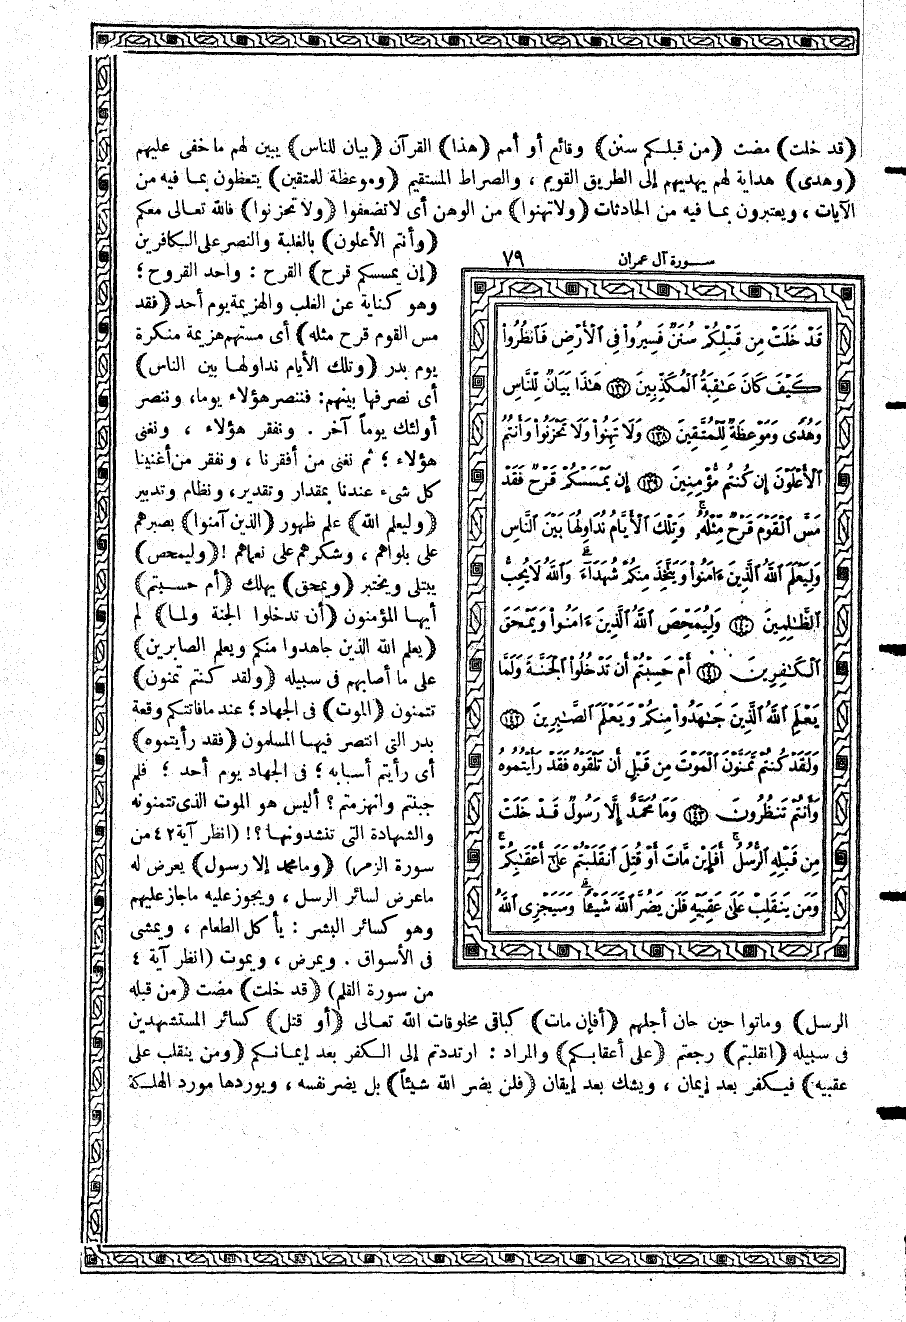 (قد خلت) مضت (من قبلكم سنن) وقائع أو أمم (هذا) القرآن (بيان للناس) يبين لهم ما خفى عليهم
(وهدى) هداية لهم يهديهم إلى الطريق القويم ، والصراط المستقيم (وموعظة للمتقين) يتعظون بما فيه من
الآيات ، ويعتبرون بما فيه من الحادثات (ولا تهنوا) من الوهن أى لا تضعفوا (ولا تحزنوا) فالله تعالى معكم
(وأنتم الأعلون) بالغلبة والنصر على الكافرين
(إن يمسسكم قرح) القرح : واحد القروح ؛
وهو كناية عن الغلب والهزيمة يوم أحد (فقد
مس القوم قرح مثله) أى مستهم هزيمة منكرة
يوم بدر (وتلك الأيام نداولها بين الناس)
أى نصرفها بينهم: فننصر هؤلاء يوما، وننصر
أولئك يوماً آخر . ونفقر هؤلاء ، ونغنى
هؤلاء ؛ ثم نغنى من أفقرنا ، ونفقر من أغنينا
كل شىء عندنا بمقدار وتقدير، ونظام وتدبير
(وليعلم الله) علم ظهور (الذين آمنوا) بصبرهم
على بلواهم ، وشكرهم على نعماهم ! (وليمحص)
يبتلى ويختبر (ويمحق) يهلك (أم حسبتم)
أيها المؤمنون (أن تدخلوا الجنة ولما) لم
(يعلم الله الذين جاهدوا منكم ويعلم الصابرين)
على ما أصابهم فى سبيله (ولقد كنتم تمنون)
تتمنون (الموت) فى الجهاد؛ عند مافاتتكم وقعة
بدر التى انتصر فيها المسلمون (فقد رأيتموه)
أى رأيتم أسبابه ؛ فى الجهاد يوم أحد ؛ فلم
جبنتم وانهزمتم ؟ أليس هو الموت الذى تتمنونه
والشهادة التى تنشدونها ؟! (انظر آية ٤٢ من
سورة الزمر) (وما محمد إلا رسول) يعرض له
ما عرض لسائر الرسل ، ويجوز عليه ما جاز عليهم
وهو كسائر البشر : يأكل الطعام ، ويمشى
فى الأسواق . ويمرض ، ويموت (انظر آية ٤
من سورة القلم) (قد خلت) مضت (من قبله
سورة آل عمران ٧٩
قَدْ خَلَتْ مِن قَبْلِكُمْ سُنَنٌ فَسِيرُوا۟ فِى ٱلْأَرْضِ فَٱنظُرُوا۟
كَيْفَ كَانَ عَـٰقِبَةُ ٱلْمُكَذِّبِينَ ١٣٧ هَـٰذَا بَيَانٌ لِّلنَّاسِ
وَهُدًى وَمَوْعِظَةٌ لِّلْمُتَّقِينَ ١٣٨ وَلَا تَهِنُوا۟ وَلَا تَحْزَنُوا۟ وَأَنتُمُ
ٱلْأَعْلَوْنَ إِن كُنتُم مُّؤْمِنِينَ ١٣٩ إِن يَمْسَسْكُمْ قَرْحٌ فَقَدْ
مَسَّ ٱلْقَوْمَ قَرْحٌ مِّثْلُهُۥ ۚ وَتِلْكَ ٱلْأَيَّامُ نُدَاوِلُهَا بَيْنَ ٱلنَّاسِ
وَلِيَعْلَمَ ٱللَّهُ ٱلَّذِينَ ءَامَنُوا۟ وَيَتَّخِذَ مِنكُمْ شُهَدَآءَ ۗ وَٱللَّهُ لَا يُحِبُّ
ٱلظَّـٰلِمِينَ ١٤٠ وَلِيُمَحِّصَ ٱللَّهُ ٱلَّذِينَ ءَامَنُوا۟ وَيَمْحَقَ
ٱلْكَـٰفِرِينَ ١٤١ أَمْ حَسِبْتُمْ أَن تَدْخُلُوا۟ ٱلْجَنَّةَ وَلَمَّا
يَعْلَمِ ٱللَّهُ ٱلَّذِينَ جَـٰهَدُوا۟ مِنكُمْ وَيَعْلَمَ ٱلصَّـٰبِرِينَ ١٤٢
وَلَقَدْ كُنتُمْ تَمَنَّوْنَ ٱلْمَوْتَ مِن قَبْلِ أَن تَلْقَوْهُ فَقَدْ رَأَيْتُمُوهُ
وَأَنتُمْ تَنظُرُونَ ١٤٣ وَمَا مُحَمَّدٌ إِلَّا رَسُولٌ قَدْ خَلَتْ
مِن قَبْلِهِ ٱلرُّسُلُ ۚ أَفَإِي۟ن مَّاتَ أَوْ قُتِلَ ٱنقَلَبْتُمْ عَلَىٰٓ أَعْقَـٰبِكُمْ ۚ
وَمَن يَنقَلِبْ عَلَىٰ عَقِبَيْهِ فَلَن يَضُرَّ ٱللَّهَ شَيْـًٔا ۗ وَسَيَجْزِى ٱللَّهُ
الرسل) وماتوا حين حان أجلهم (أفإن مات) كباقى مخلوقات الله تعالى (أو قتل) كسائر المستشهدين
فى سبيله (انقلبتم) رجعتم (على أعقابكم) والمراد : ارتددتم إلى الكفر بعد إيمانكم (ومن ينقلب على
عقبيه) فيكفر بعد إيمان ، ويشك بعد إيقان (فلن يضر الله شيئاً) بل يضر نفسه ، ويوردها مورد الهلكة